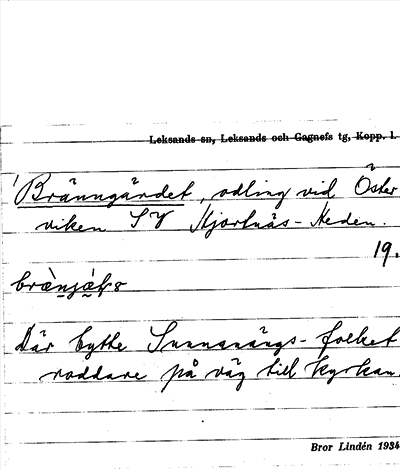 Leksands sn, Leksands och Gagnefs tg, Kopp. l.
Bränngärdet, odling vid Öster
viken SV Hjortnäs-Heden.
19.
Där bytte Sunnanängs-folket
roddare på väg till kyrkan.
Bror Lindén 1934